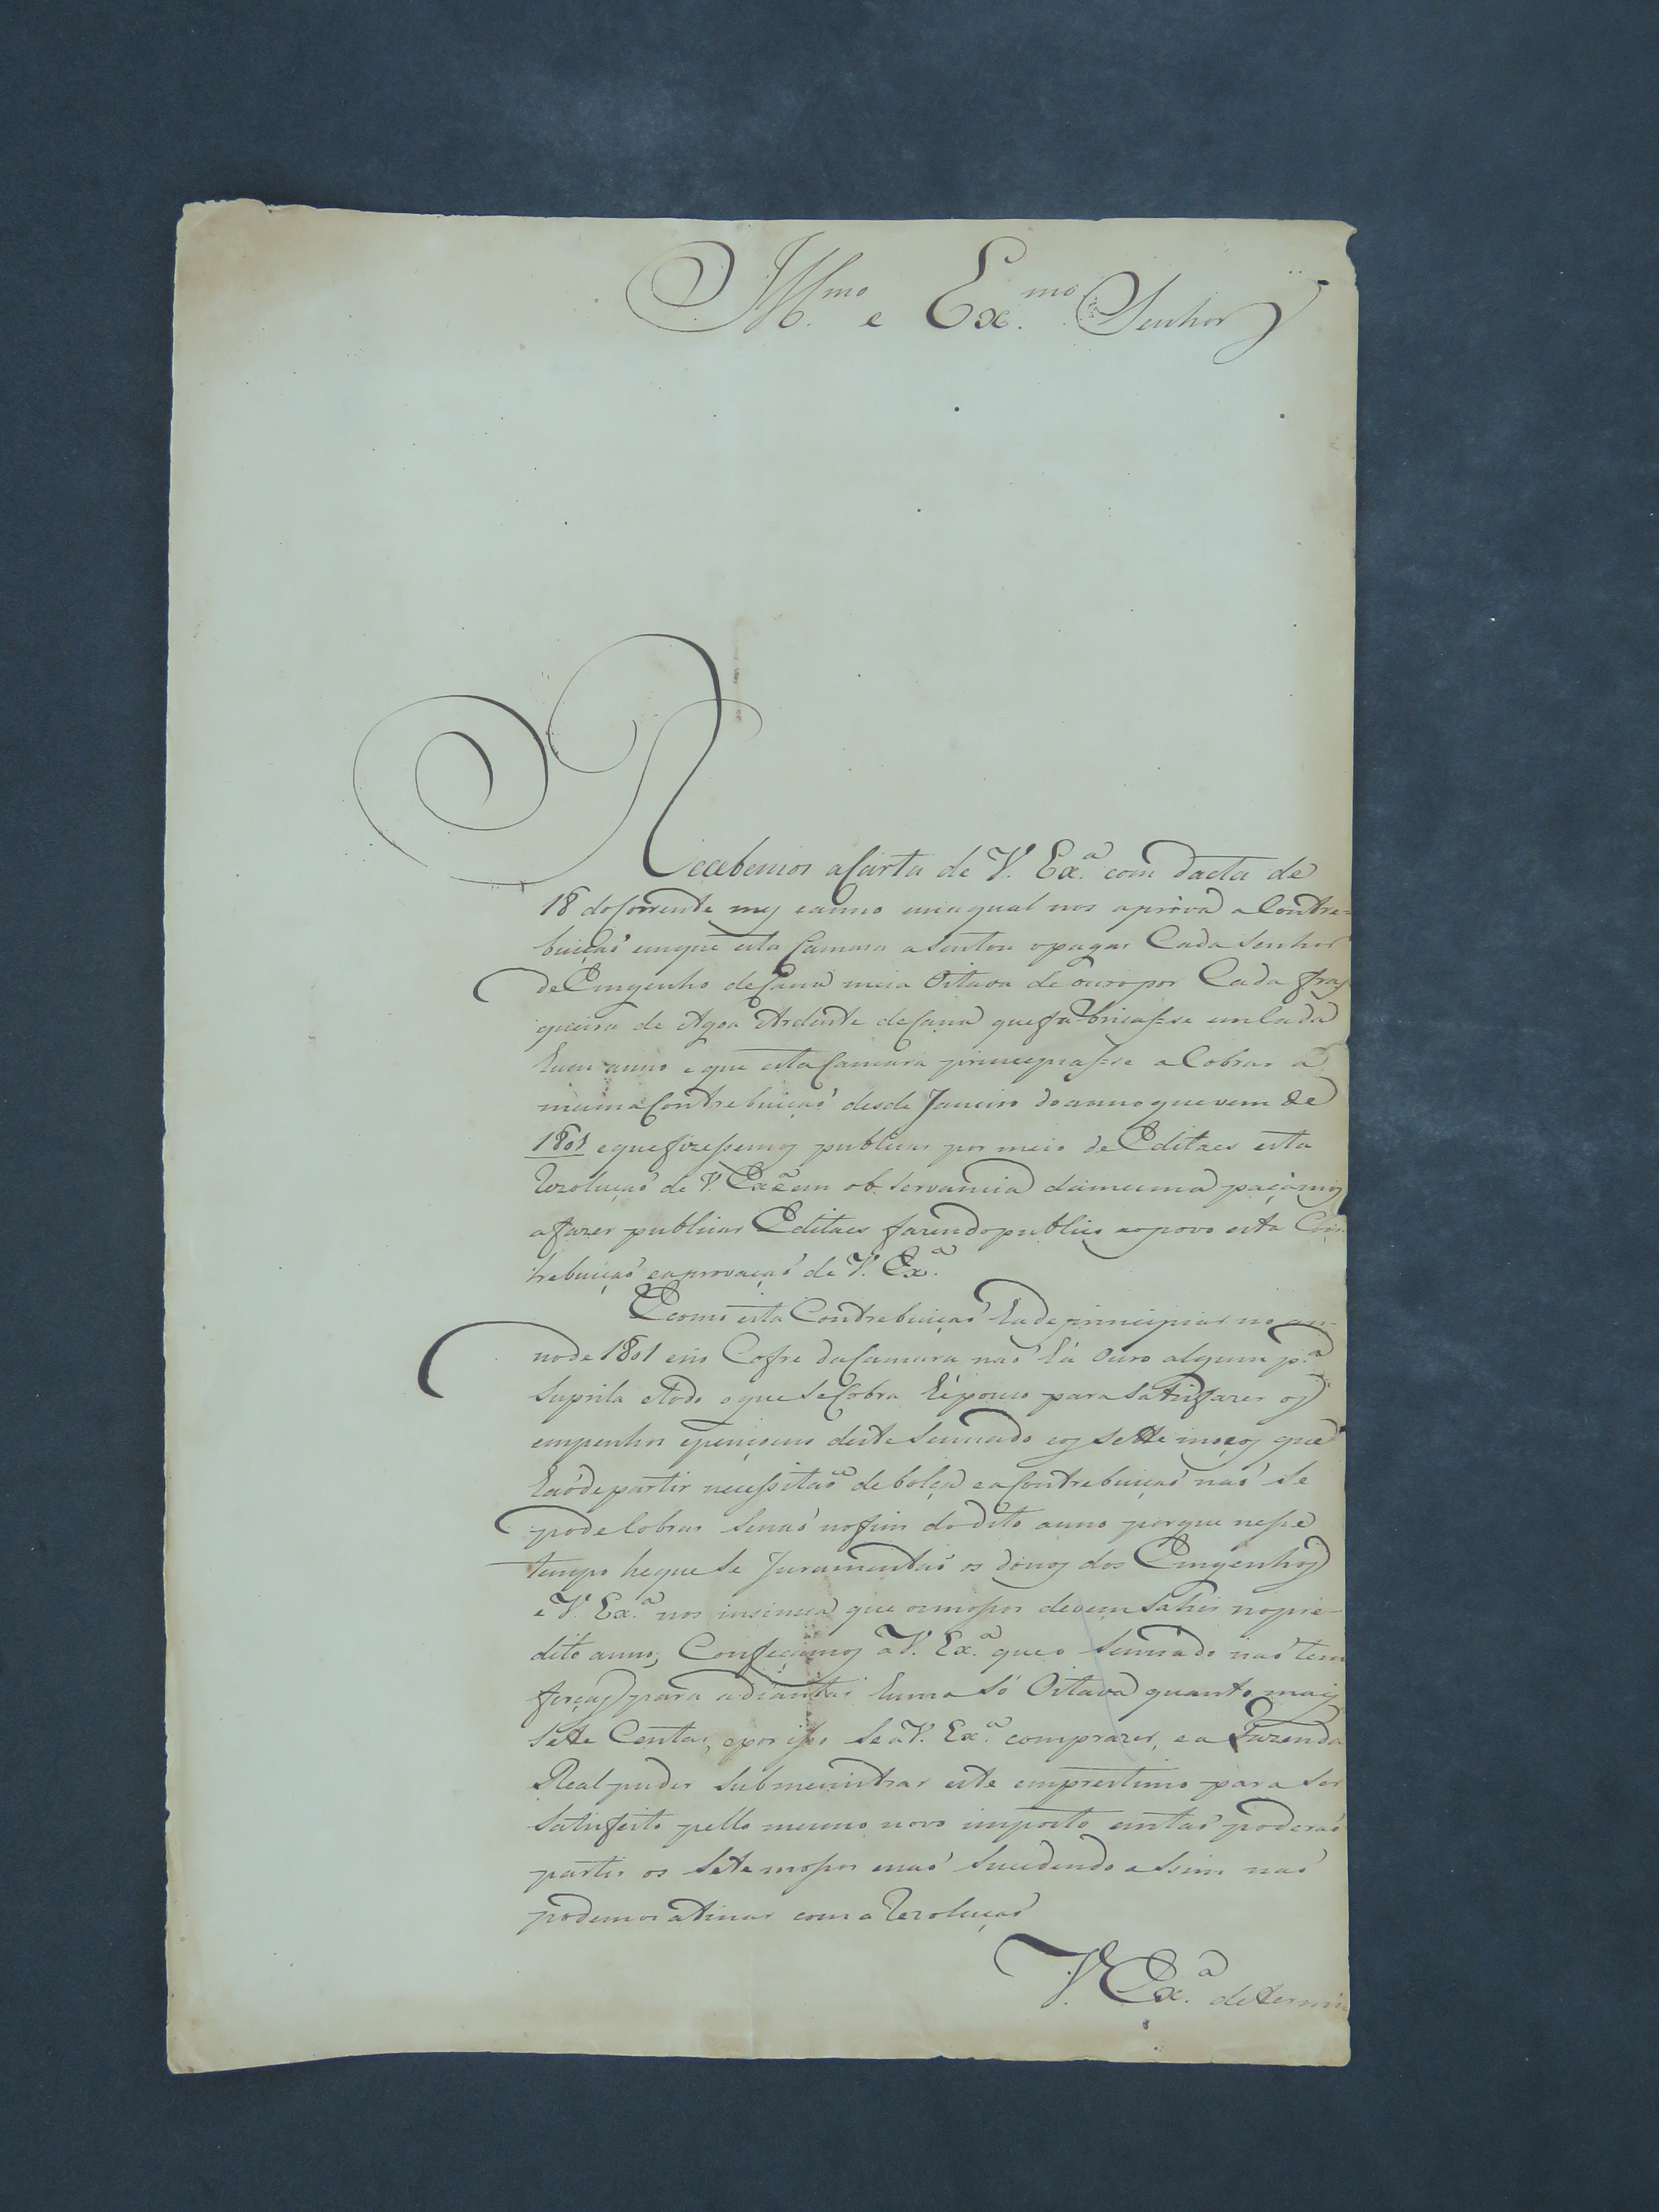 Ill.mo e Ex.mo Senhor
Recebemos a Carta de V. Ex.a com dacta de
18 do Corrente mez e anno em a qual nos aprova a Contre-
buiçaõ em que esta Camara asentou o pagar Cada Senhor
de Emgenho de Cana meia Oitava de ouro por Cada fras
queira de Agoa Ardente de Cana que fabricasse em Cada
hum anno e que esta Camara principiasse a Cobrar a
mesma Contrebuiçaõ desde Janeiro do anno que vem de
1801 e que fizessemos publicar por meio de Editaes esta
Rezoluçaõ de V. Ex.a e em observancia da mesma paçamos
a fazer publicar Editaes fazendo publico ao povo esta Con
trebuiçaõ e aprovaçaõ de V. Ex.a
E como esta Contrebuiçaõ ha de principiar no an-
no de 1801 e no Cofre da Camara naõ há Ouro algum p.a
suprila e todo o que se Cobra hé pouco para satisfazer os
empenhos e penções deste Sennado e os sette moços que
haõ de partir necessitaõ de bolça e a Contrebuiçaõ naõ se
pode Cobrar senaõ no fim do dito anno porque nesse
tempo he que se Juramentaõ os donos dos Emgenhos
e V. Ex.a nos insinua que os mossos devem sahir no pre-
dito anno; Confeçamos a V. Ex.a que o Sennado naõ tem
forças para adiantar huma só Oitava quanto mais
sette Centas, e por isso se a V. Ex.a comprazer, e a Fazenda
Real puder submenistrar este emprestimo para ser
satisfeito pello mesmo novo imposto entaõ poderaõ
partir os sete mossos e naõ sucedendo assim naõ
podemos atinar com a Rezoluçaõ
V. Ex.a determin